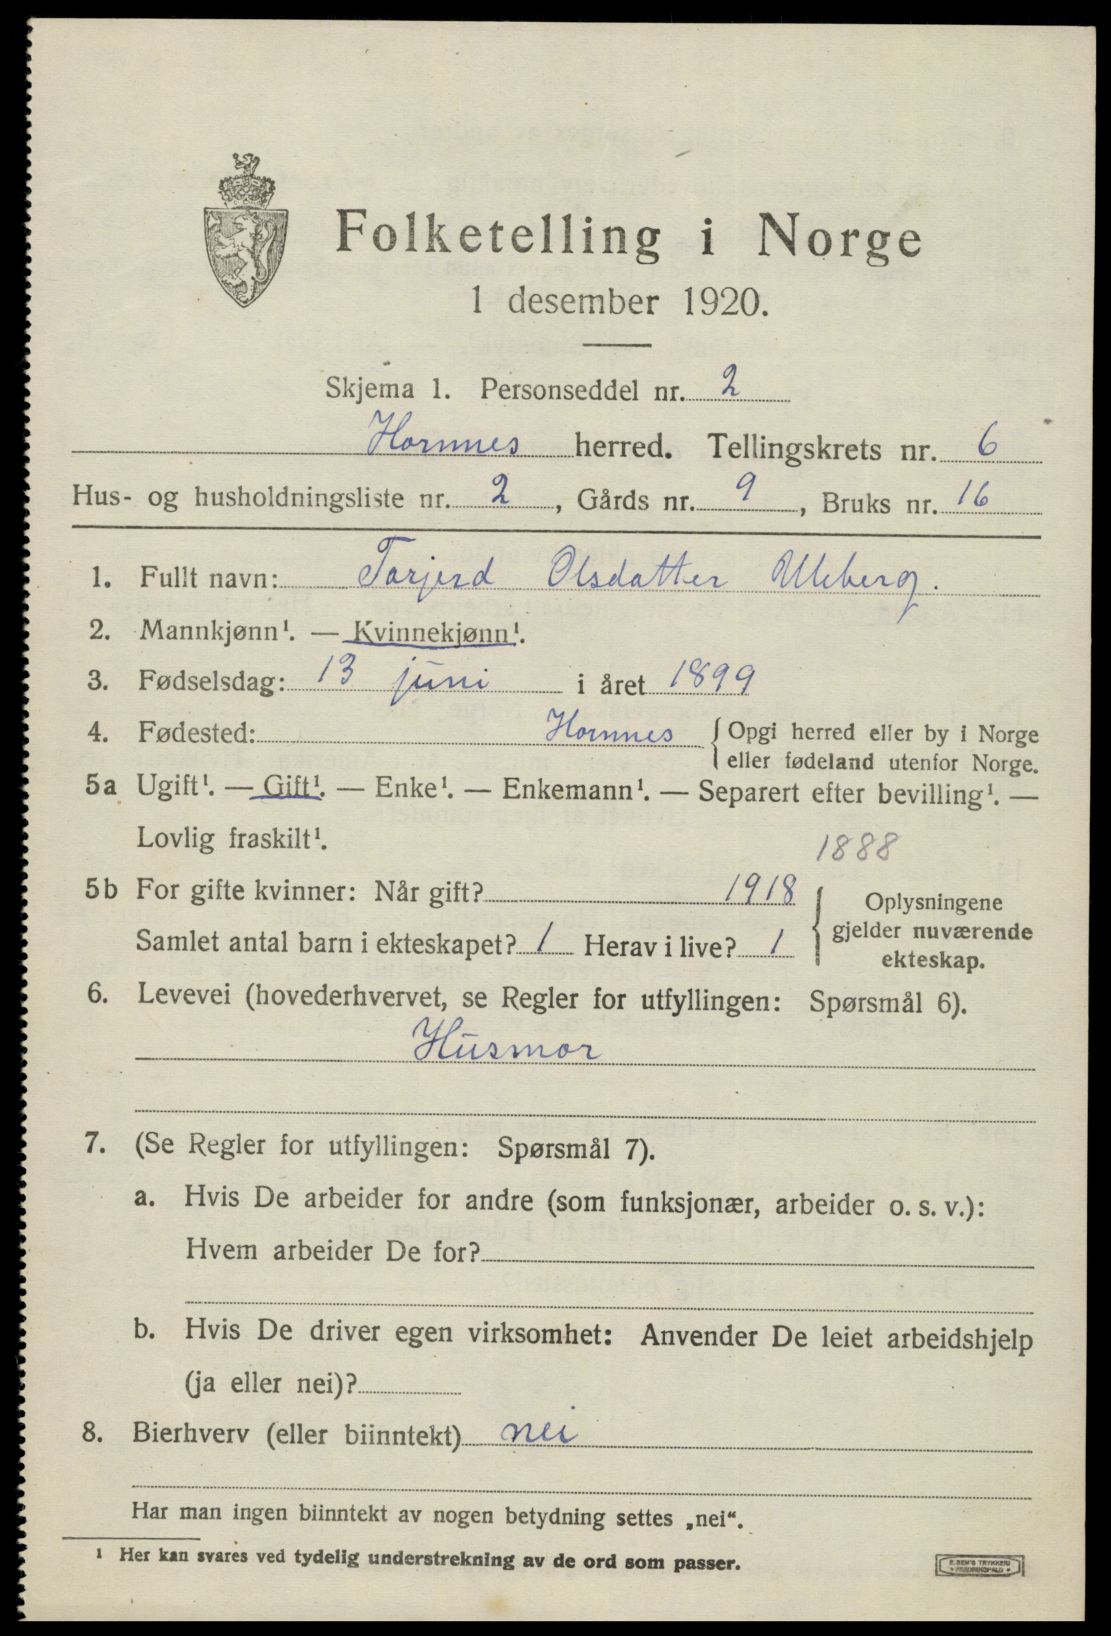 Folketelling i Norge
1 desember 1920.
Skjema 1. Personseddel nr. 2
Hornnes herred. Tellingskrets nr. 6
Hus- og husholdningsliste nr. 2, Gårds nr. 9, Bruks nr. 16
1. Fullt navn: Torjerd Olsdatter Uleberg.
2. Mannkjønn¹. — Kvinnekjønn¹.
3. Fødselsdag: 13 juni i året 1899
4. Fødested: Hornnes { Opgi herred eller by i Norge
eller fødeland utenfor Norge.
5a Ugift¹. — Gift¹. — Enke¹. — Enkemann¹. — Separert efter bevilling¹. —
Lovlig fraskilt¹.
1888
5b For gifte kvinner: Når gift? 1918
Samlet antal barn i ekteskapet? 1 Herav i live? 1
Oplysningene
gjelder nuværende
ekteskap.
6. Levevei (hovederhvervet, se Regler for utfyllingen: Spørsmål 6).
Husmor
7. (Se Regler for utfyllingen: Spørsmål 7).
a. Hvis De arbeider for andre (som funksjonær, arbeider o. s. v.):
Hvem arbeider De for?
b. Hvis De driver egen virksomhet: Anvender De leiet arbeidshjelp
(ja eller nei)?
8. Bierhverv (eller biinntekt) nei
Har man ingen biinntekt av nogen betydning settes „nei“.
¹ Her kan svares ved tydelig understrekning av de ord som passer.